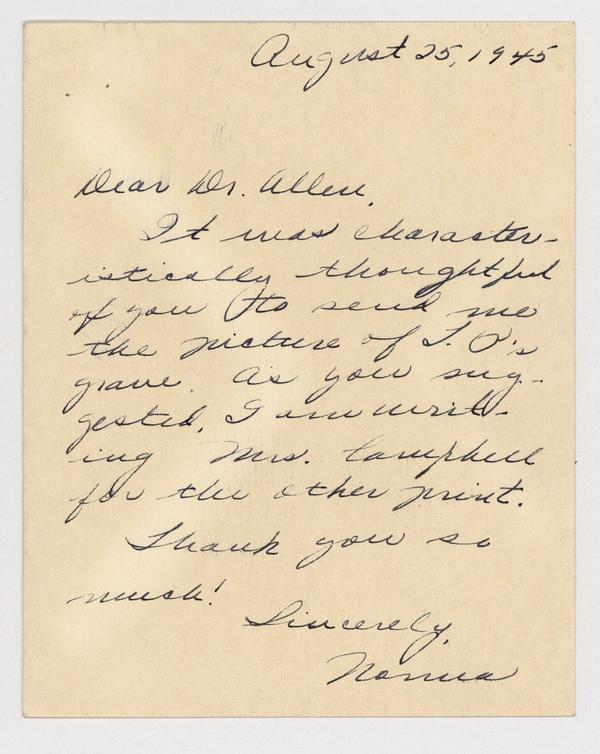 August 25, 1945
Dear Dr. Allen,
It was character-
istically thoughtful
of you to send me
the picture of T. P.'s
grave. As you sug-
gested, I am writ-
ing Mrs. Campbell
for the other print.
Thank you so
much!
Sincerely,
Norma